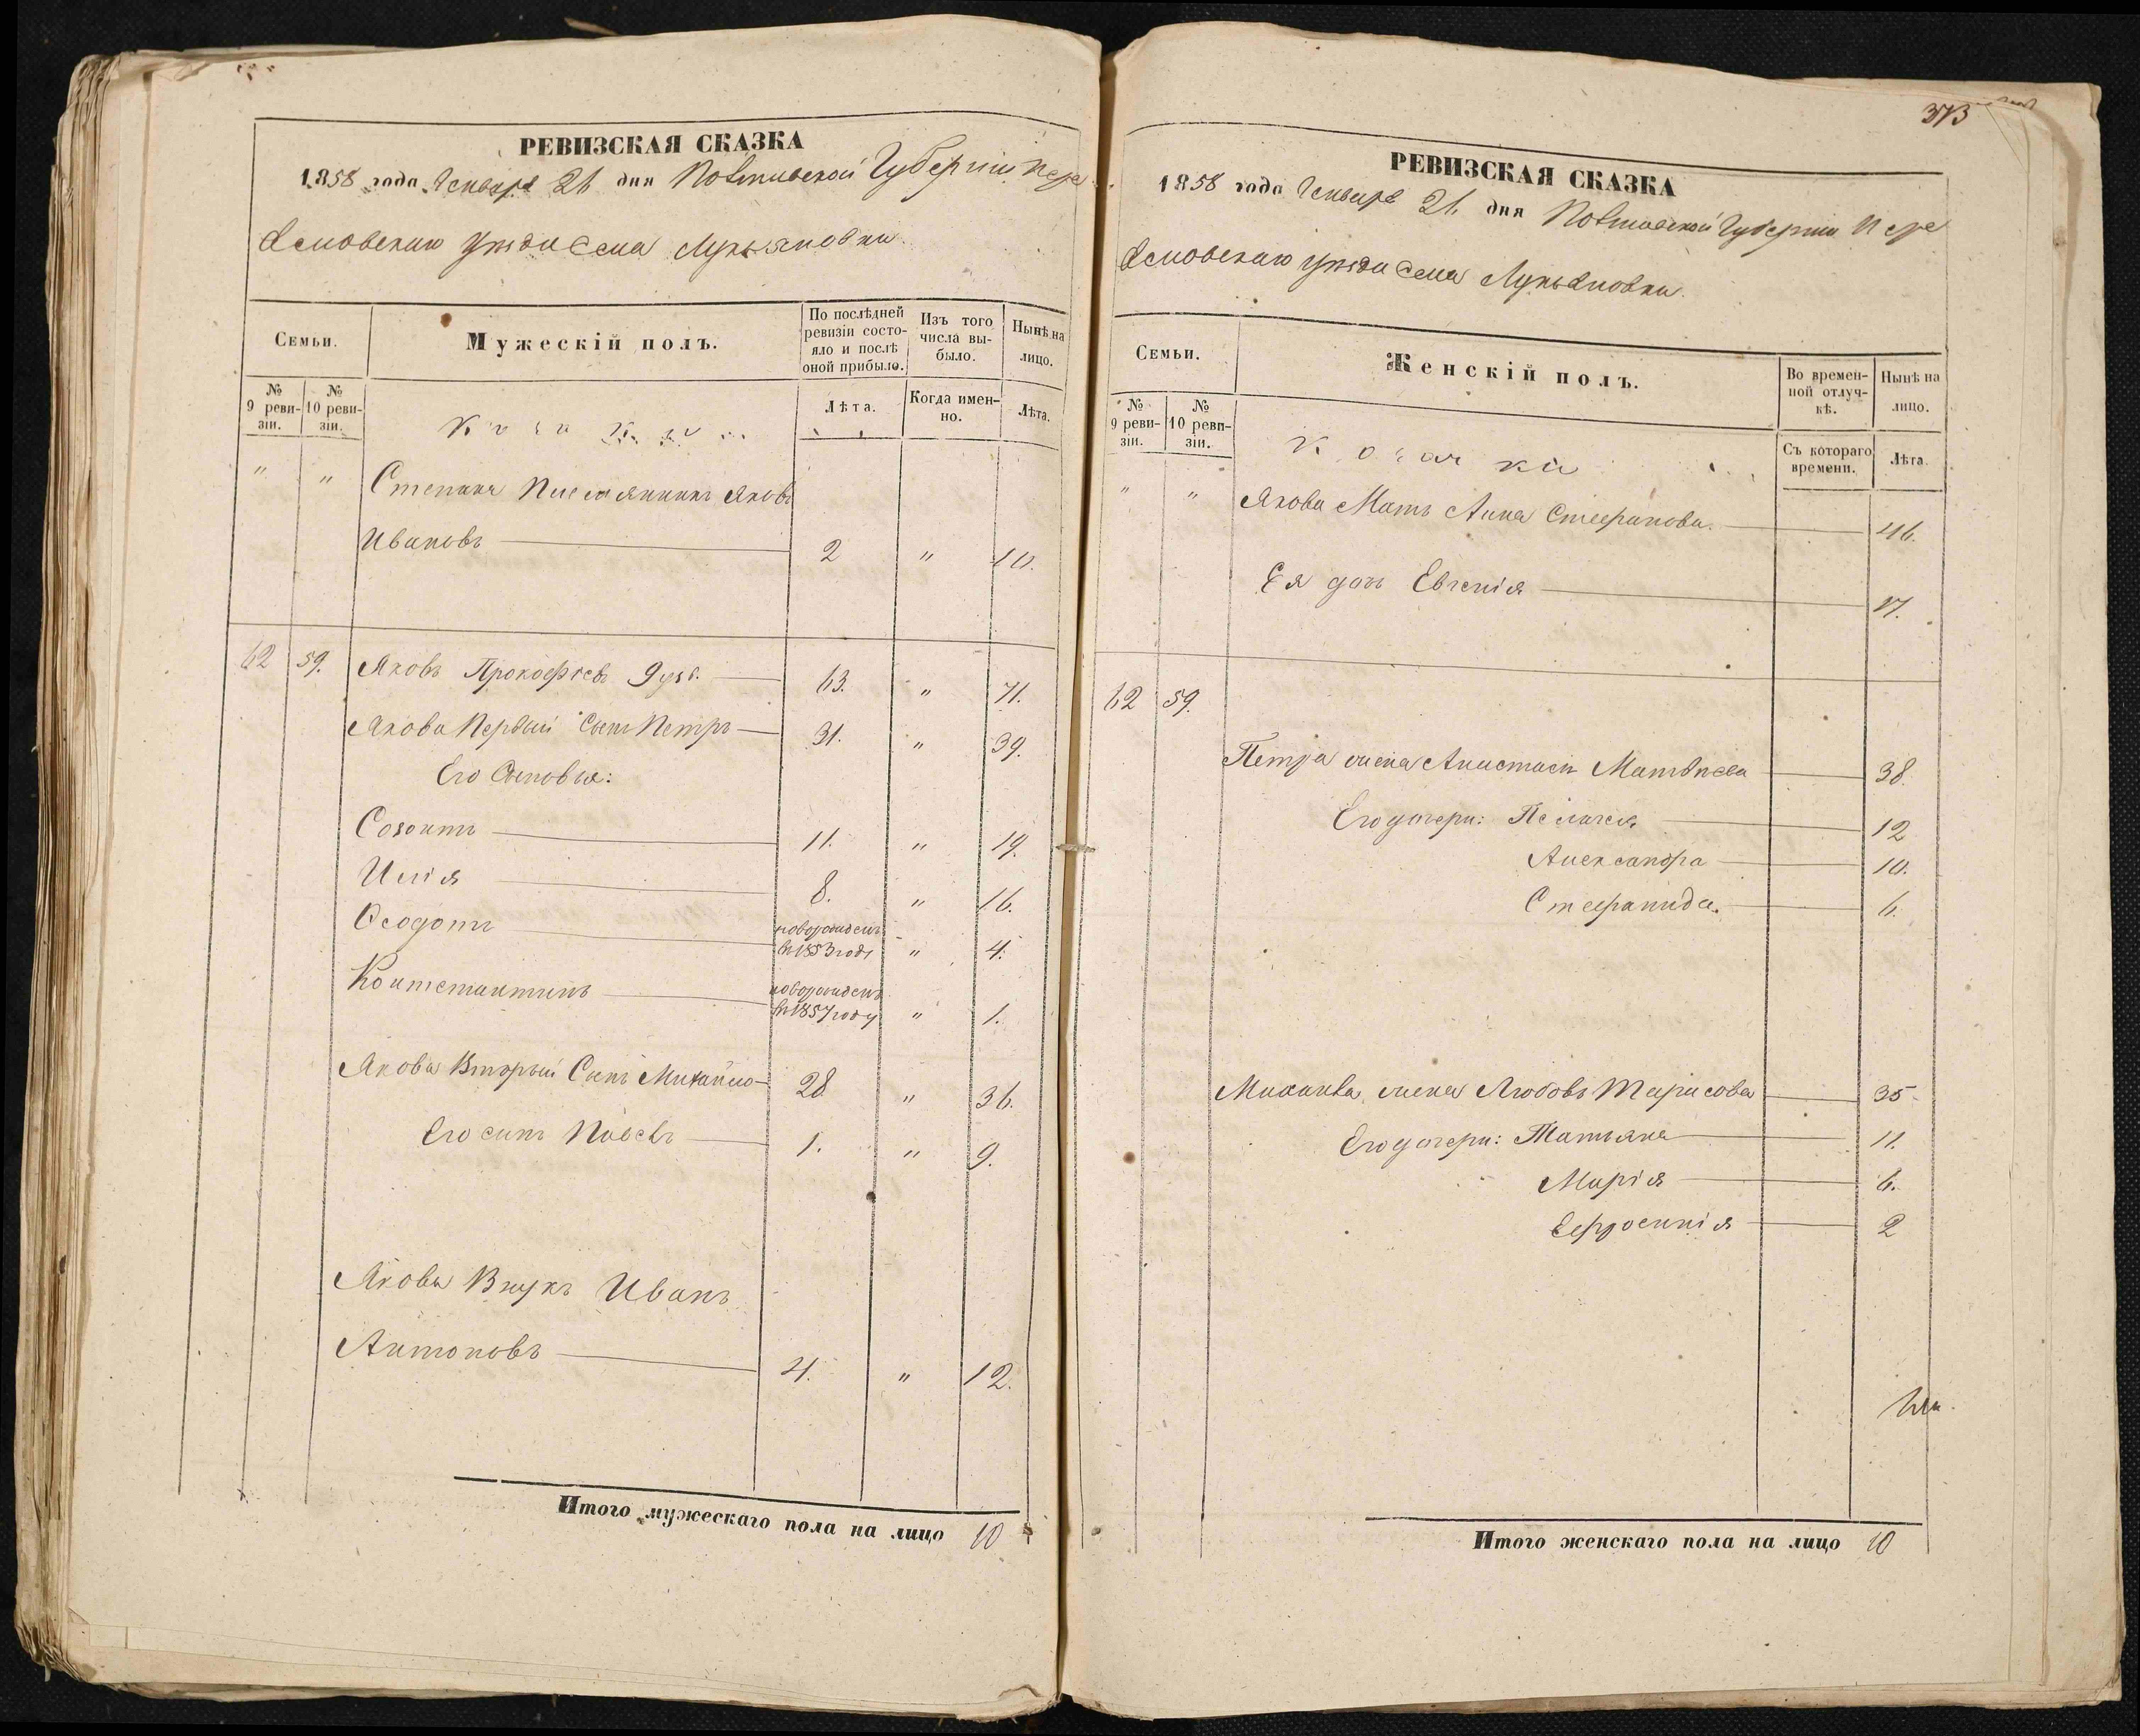 РЕВИЗСКАЯ СКАЗКА
1858 года Генваря 21 дня Полтавской Губерніи Пере
яславскаго уезда Села Лукьяновки.
Семьи.
Мужескій полъ.
По послѣдней ревизіи состояло и послѣ оной прибыло.
Изъ того числа выбыло.
Нынѣ на лицо.
№ 9 ревизіи.
№ 10 ревизіи.
Козаки
Лѣта.
Когда именно.
Лѣта.
" " Степана Племянникъ Яковъ
Ивановъ 2 " 10.
62 59. Яковъ Прокофіевъ 63. " 71.
Якова Первый Сынъ Петръ 31. " 39.
Его Сыновья:
Созонтъ 11. " 19.
Илія 8. " 16.
Ѳеодотъ новорожденъ
въ 1853 году " 4.
Контстантинъ новорожденъ
въ 1857 году " 1.
Якова Вторый Сынъ Михайло 28 " 36.
Его сынъ Павелъ 1. " 9.
Якова Внукъ Иванъ
Антоновъ 4. " 12.
Итого мужескаго пола на лицо 10
373
РЕВИЗСКАЯ СКАЗКА
1858 года Генваря 21. дня Полтавской Губерніи Пере
яславскаго уезда Села Лукьяновки.
Семьи.
Женскій полъ.
Во временной отлучкѣ.
Нынѣ на лицо.
№ 9 ревизіи.
№ 10 ревизіи.
Козачки
Съ котораго времени.
Лѣта.
" " Якова Мать Анна Стефанова. 46.
Ея дочь Евгенія 17.
62 59.
Петра жена Анастасія Матвѣева 38.
Его дочери: Пелагея 12
Александра 10.
Стефанида. 6.
Михаила жена Любовь Тарасова 35
Его дочери: Татьяна 11.
Марія 6.
Евфросинія 2
Итого женскаго пола на лицо 10